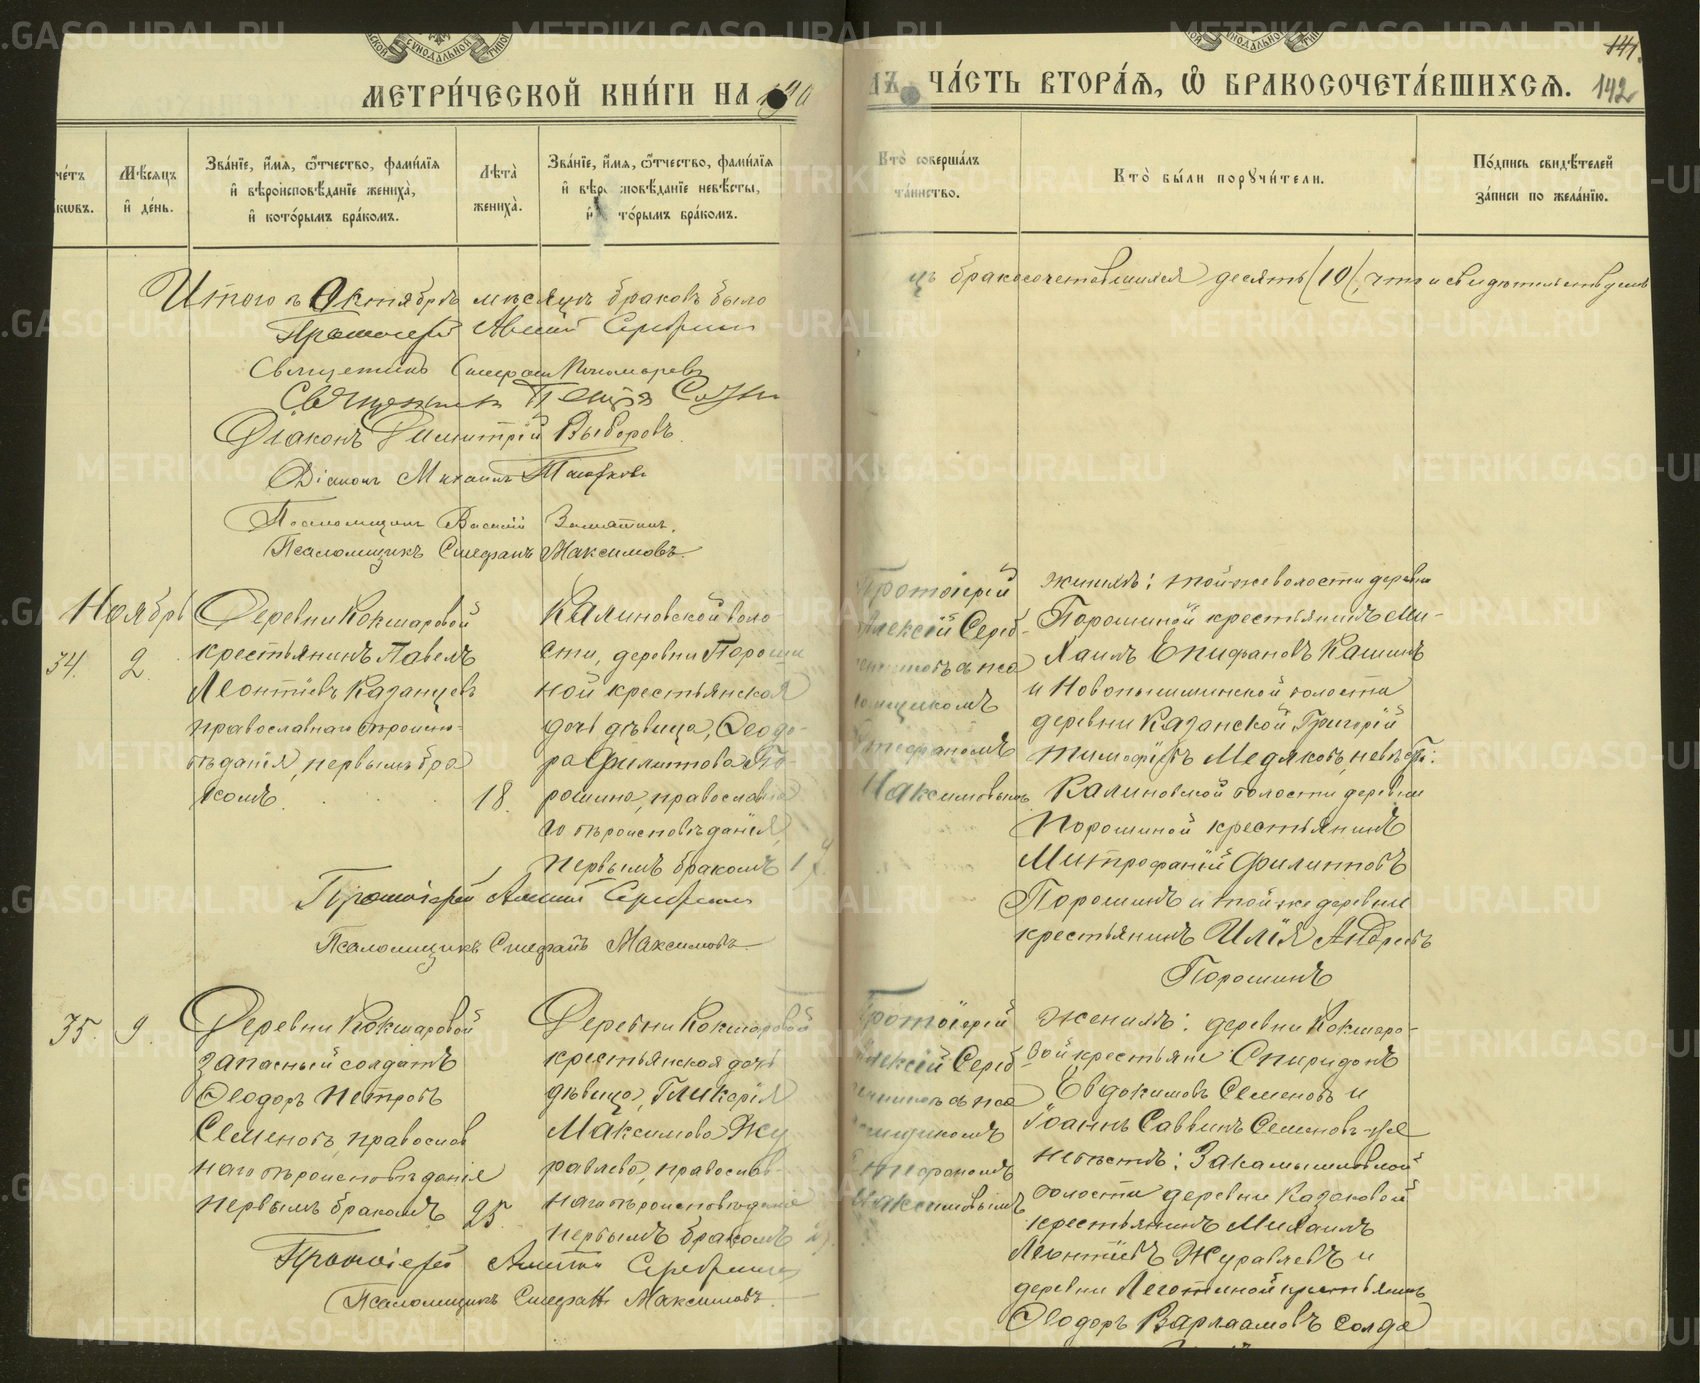 МЕТРИ́ЧЕСКОЙ КНИ́ГИ НА
ЧА́СТЬ ВТОРА́Я, Ѡ҆ БРАКОСОЧЕТА́ВШИХСЯ.
142
Мѣ́сяцъ
и҆ де́нь.
Зва́нїе, и҆́мя, ѻ҆́тчество, фами́лїя
и҆ вѣроисповѣ́данїе жениха̀,
и҆ кото́рымъ бра́комъ.
Лѣта̀
жениха̀.
Зва́нїе, и҆́мя, ѻ҆́тчество, фами́лїя
невѣ́сты,
бра́комъ.
Кто̀ соверша́лъ
та́инство.
Кто̀ бы́ли порꙋчи́тели.
По́дпись свидѣ́телей
за́писи по жела́нїю.
Итого въ Октябрѣ мѣсяцѣ браковъ было
бракосочетавшихся десять (10), что и свидѣтельствуемъ
Протоіерей Алексій Серебренниковъ
Священникъ Стефанъ Пономаревъ
Священникъ Петръ
Діаконъ Димитрій Выборовъ
Діаконъ Михаилъ
Псаломщикъ Василій Замятинъ.
Псаломщикъ Стефанъ Максимовъ.
Ноябрь
34.
2.
Деревни Кокшаровой
крестьянинъ Павелъ
Леонтіевъ Казанцевъ
православнаго вѣроиспо-
вѣданія, первымъ бра
комъ.
18.
Калиновской воло-
сти, деревни Пороши
ной крестьянская
дочь дѣвица, Ѳеодо-
ра Филиппова По-
рошина, православна
го вѣроисповѣданія,
первымъ бракомъ
Протоіерей
Алексій Сереб-
ренниковъ съ пса
ломщикомъ
Стефаномъ
Максимовымъ
жениху: тойже волости деревни
Порошиной крестьянинъ Ми-
хаилъ Епифановъ Кашинъ
и Новопышминской волости
деревни Казанской Григорій
Тимофѣевъ Медяковъ, невѣстѣ:
Калиновской волости деревни
Порошиной крестьянинъ
Митрофаній Филипповъ
Порошинъ и тойже деревни
крестьянинъ Илія Андреевъ
Порошинъ
Протоіерей Алексій Серебренниковъ
Псаломщикъ Стефанъ Максимовъ
35.
9.
Деревни Кокшаровой
запасный солдатъ
Ѳеодоръ Петровъ
Семеновъ, православ
наго вѣроисповѣданія
первымъ бракомъ
25.
Деревни Кокшаровой
крестьянская дочь
дѣвица, Гликерія
Максимова Жу
равлева, православ-
наго вѣроисповѣданія
первымъ бракомъ
Протоіерей
Алексій Сереб-
ренниковъ съ пса
ломщикомъ
Стефаномъ
Максимовымъ
жениху: деревни Кокшаро-
вой крестьяне Спиридонъ
Евдокимовъ Семеновъ и
Іоаннъ Саввинъ Семеновъ
невѣстѣ: Закамышловской
волости деревни Казаковой
крестьянинъ Михаилъ
Леонтіевъ Журавлевъ и
деревни Леготиной крестьянинъ
Ѳеодоръ Варлаамовъ Солда
Протоіерей Алексій Серебренниковъ
Псаломщикъ Стефанъ Максимовъ.
METRIKI.GASO-URAL.RU